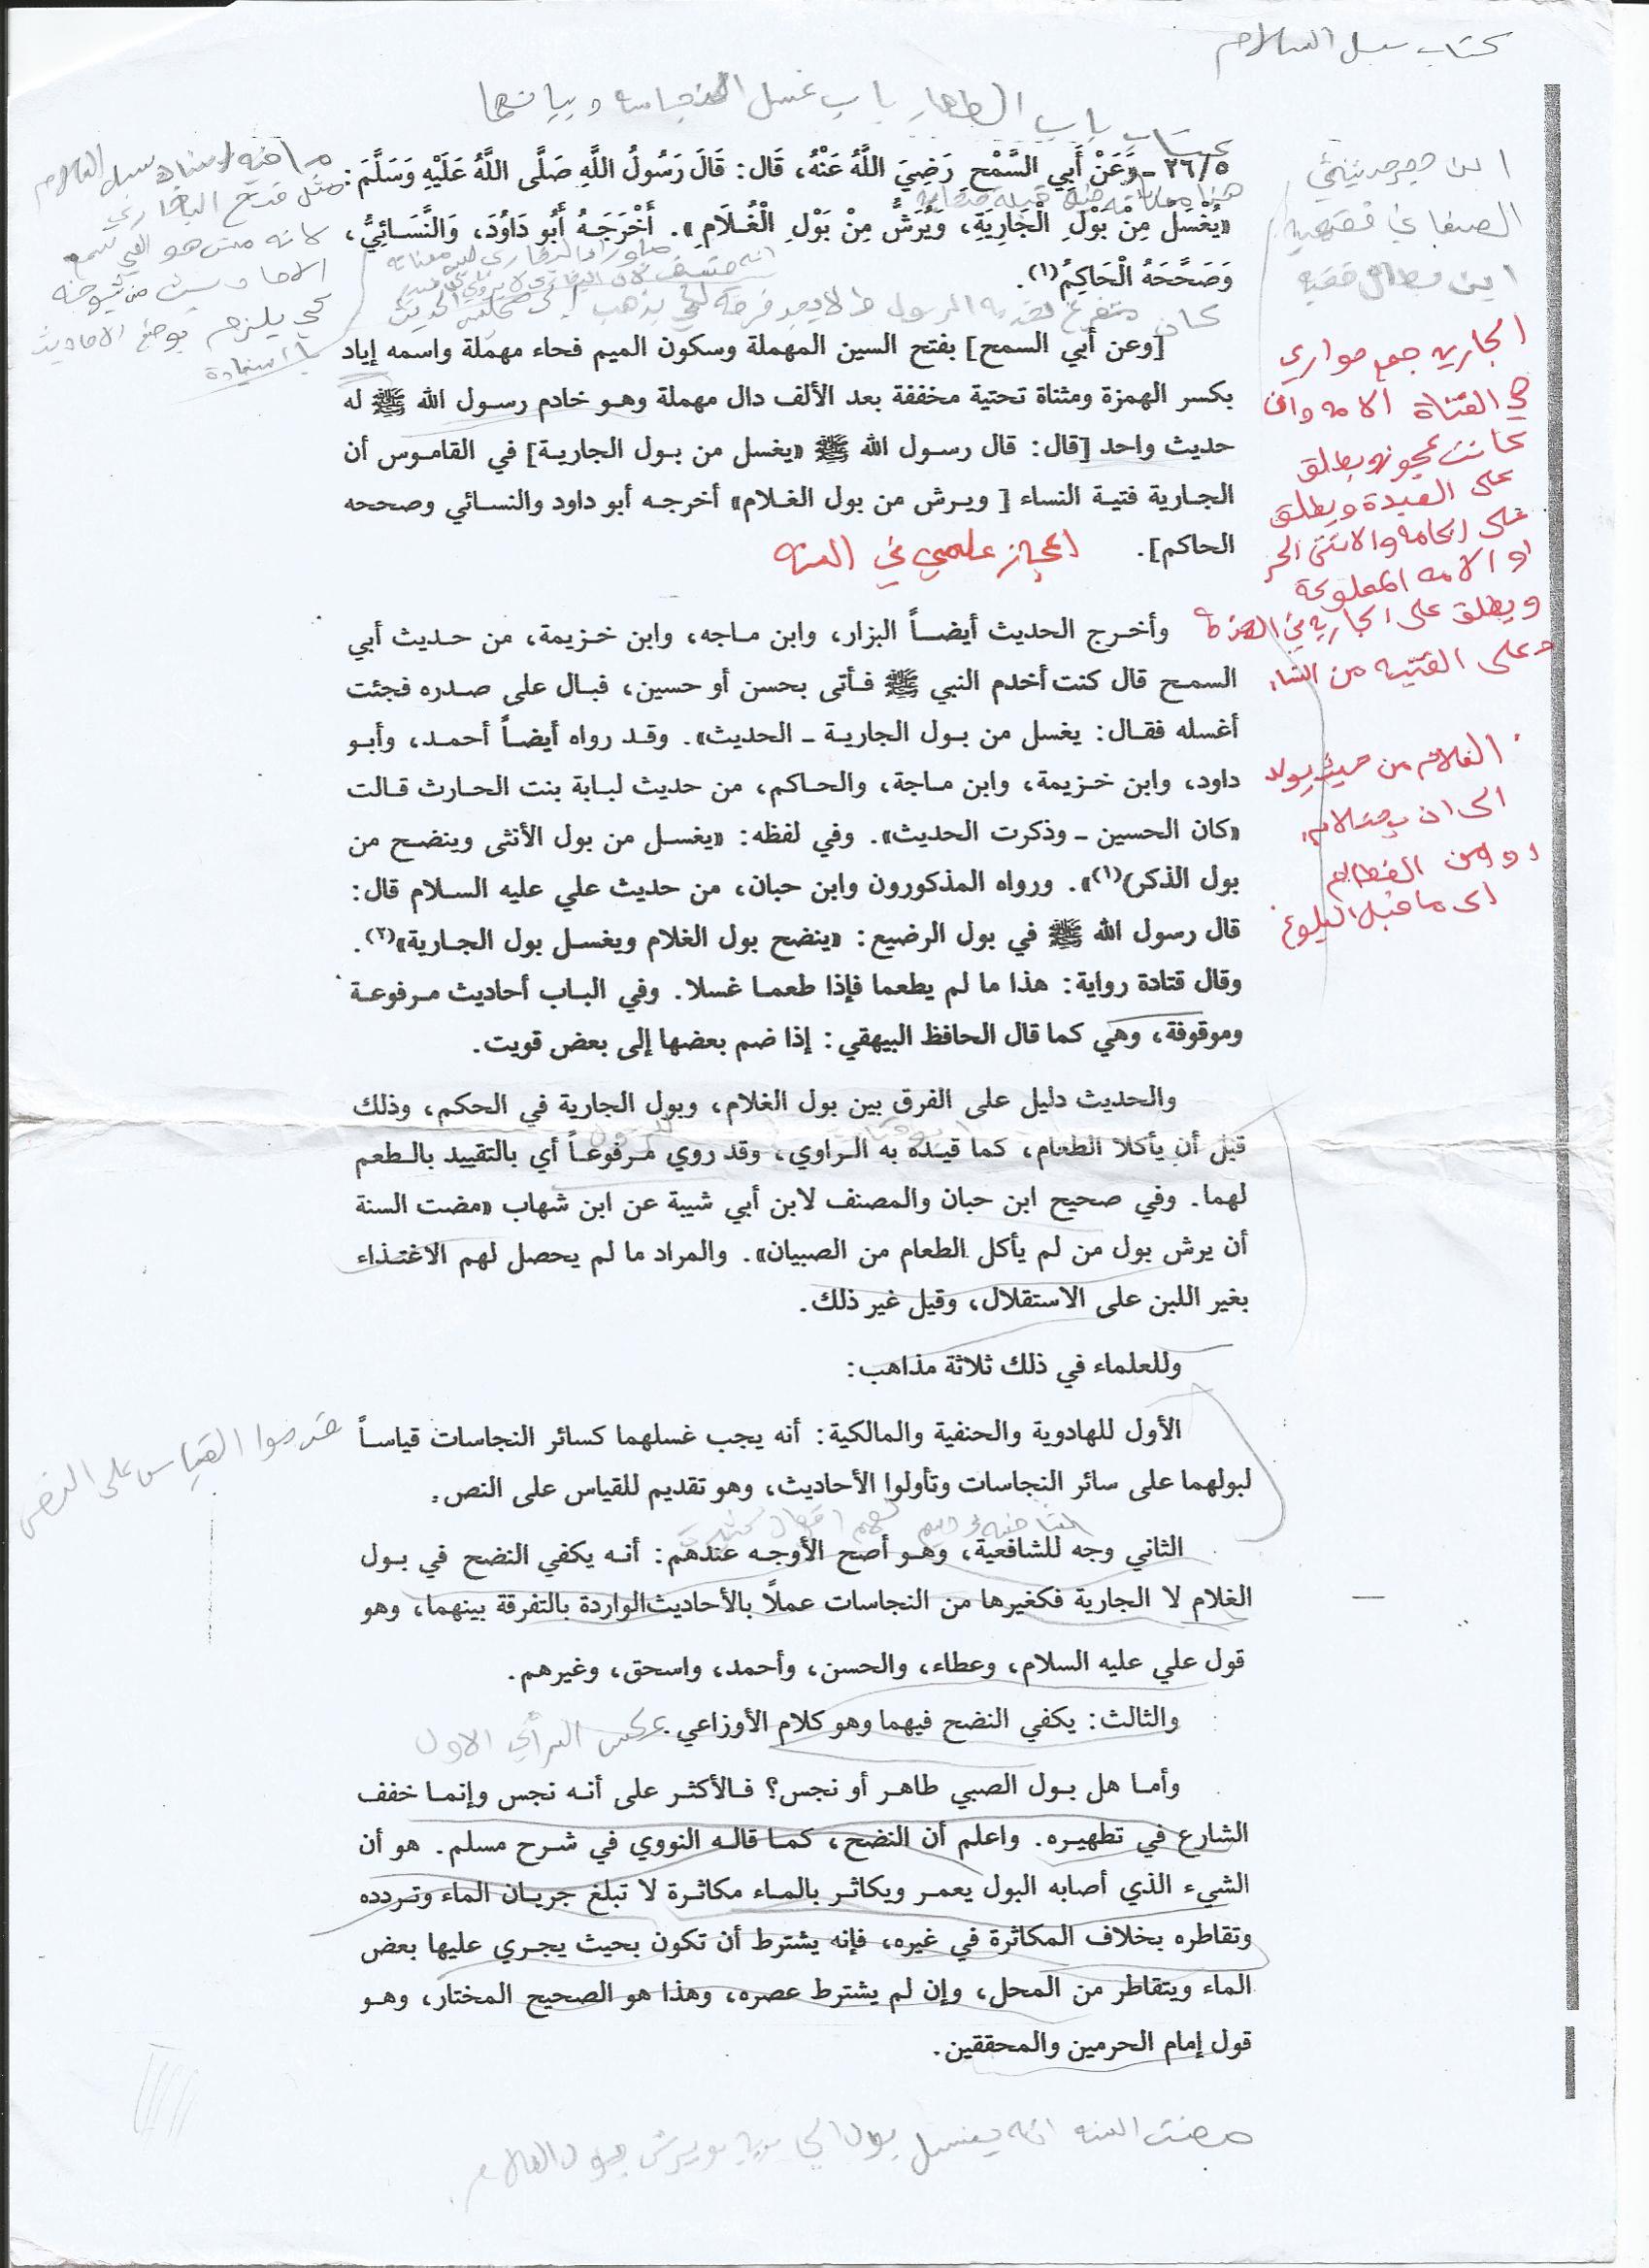 كتاب سبل السلام
كتاب باب الطهارة باب غسل النجاسة وبيانها
٢٦/٥ - وَعَنْ أَبِي السَّمْحِ رَضِيَ اللَّهُ عَنْهُ، قَالَ: قَالَ رَسُولُ اللَّهِ صَلَّى اللَّهُ عَلَيْهِ وَسَلَّمَ:
«يُغْسَلُ مِنْ بَوْلِ الْجَارِيَةِ، وَيُرَشُّ مِنْ بَوْلِ الْغُلَامِ». أَخْرَجَهُ أَبُو دَاوُدَ، وَالنَّسَائِيُّ،
وَصَحَّحَهُ الْحَاكِمُ(١).
[وعن أبي السمح] بفتح السين المهملة وسكون الميم فحاء مهملة واسمه إياد
بكسر الهمزة ومثناة تحتية مخففة بعد الألف دال مهملة وهو خادم رسول الله ﷺ له
حديث واحد [قال: قال رسول الله ﷺ «يغسل من بول الجارية] في القاموس أن
الجارية فتية النساء [ويرش من بول الغلام» أخرجه أبو داود والنسائي وصححه
الحاكم].
اعجاز علمي في السنه
وأخرج الحديث أيضاً البزار، وابن ماجه، وابن خزيمة، من حديث أبي
السمح قال كنت أخدم النبي ﷺ فأتى بحسن أو حسين، فبال على صدره فجئت
أغسله فقال: يغسل من بول الجارية ـ الحديث». وقد رواه أيضاً أحمد، وأبو
داود، وابن خزيمة، وابن ماجة، والحاكم، من حديث لبابة بنت الحارث قالت
«كان الحسين ـ وذكرت الحديث». وفي لفظه: «يغسل من بول الأنثى وينضح من
بول الذكر)(١)». ورواه المذكورون وابن حبان، من حديث علي عليه السلام قال:
قال رسول الله ﷺ في بول الرضيع: «ينضح بول الغلام ويغسل بول الجارية»(٢).
وقال قتادة رواية: هذا ما لم يطعما فإذا طعما غسلا. وفي الباب أحاديث مرفوعة
وموقوفة، وهي كما قال الحافظ البيهقي: إذا ضم بعضها إلى بعض قويت.
والحديث دليل على الفرق بين بول الغلام، وبول الجارية في الحكم، وذلك
قبل أن يأكلا الطعام، كما قيده به الراوي، وقد روي مرفوعاً أي بالتقييد بالطعم
لهما. وفي صحيح ابن حبان والمصنف لابن أبي شيبة عن ابن شهاب «مضت السنة
أن يرش بول من لم يأكل الطعام من الصبيان». والمراد ما لم يحصل لهم الاغتذاء
بغير اللبن على الاستقلال، وقيل غير ذلك.
وللعلماء في ذلك ثلاثة مذاهب:
الأول للهادوية والحنفية والمالكية: أنه يجب غسلهما كسائر النجاسات قياساً
لبولهما على سائر النجاسات وتأولوا الأحاديث، وهو تقديم للقياس على النص.
الثاني وجه للشافعية، وهو أصح الأوجه عندهم: أنه يكفي النضح في بول
الغلام لا الجارية فكغيرها من النجاسات عملاً بالأحاديث الواردة بالتفرقة بينهما، وهو
قول علي عليه السلام، وعطاء، والحسن، وأحمد، واسحق، وغيرهم.
والثالث: يكفي النضح فيهما وهو كلام الأوزاعي. عكس الرأي الاول
وأما هل بول الصبي طاهر أو نجس؟ فالأكثر على أنه نجس وإنما خفف
الشارع في تطهيره. واعلم أن النضح، كما قاله النووي في شرح مسلم. هو أن
الشيء الذي أصابه البول يعمر ويكاثر بالماء مكاثرة لا تبلغ جريان الماء وتردده
وتقاطره بخلاف المكاثرة في غيره، فإنه يشترط أن تكون بحيث يجري عليها بعض
الماء ويتقاطر من المحل، وإن لم يشترط عصره، وهذا هو الصحيح المختار، وهو
قول إمام الحرمين والمحققين.
مضت السنه انه يغسل بول الجاريه ويرش بول الغلام
الصنعاني فقيه
ابن بطال فقيه
الجاريه جمع جواري
هي الفتاة الامه وان
كانت عجوز ويطلق
على العبدة ويطلق
على الخادمه والانثى الحر
او الامه المملوكة
ويطلق على الجاريه في
وعلى الفتيه من النساء
الغلام من حيث يولد
الى ان
او من الفطام
الى ما قبل البلوغ
مثل فتح الباري
لانه مش هو اللي سمع
الاحاديث من شيوخه
لكي يلزم بوضع الاحاديث
باسناده
قدموا القياس على النص